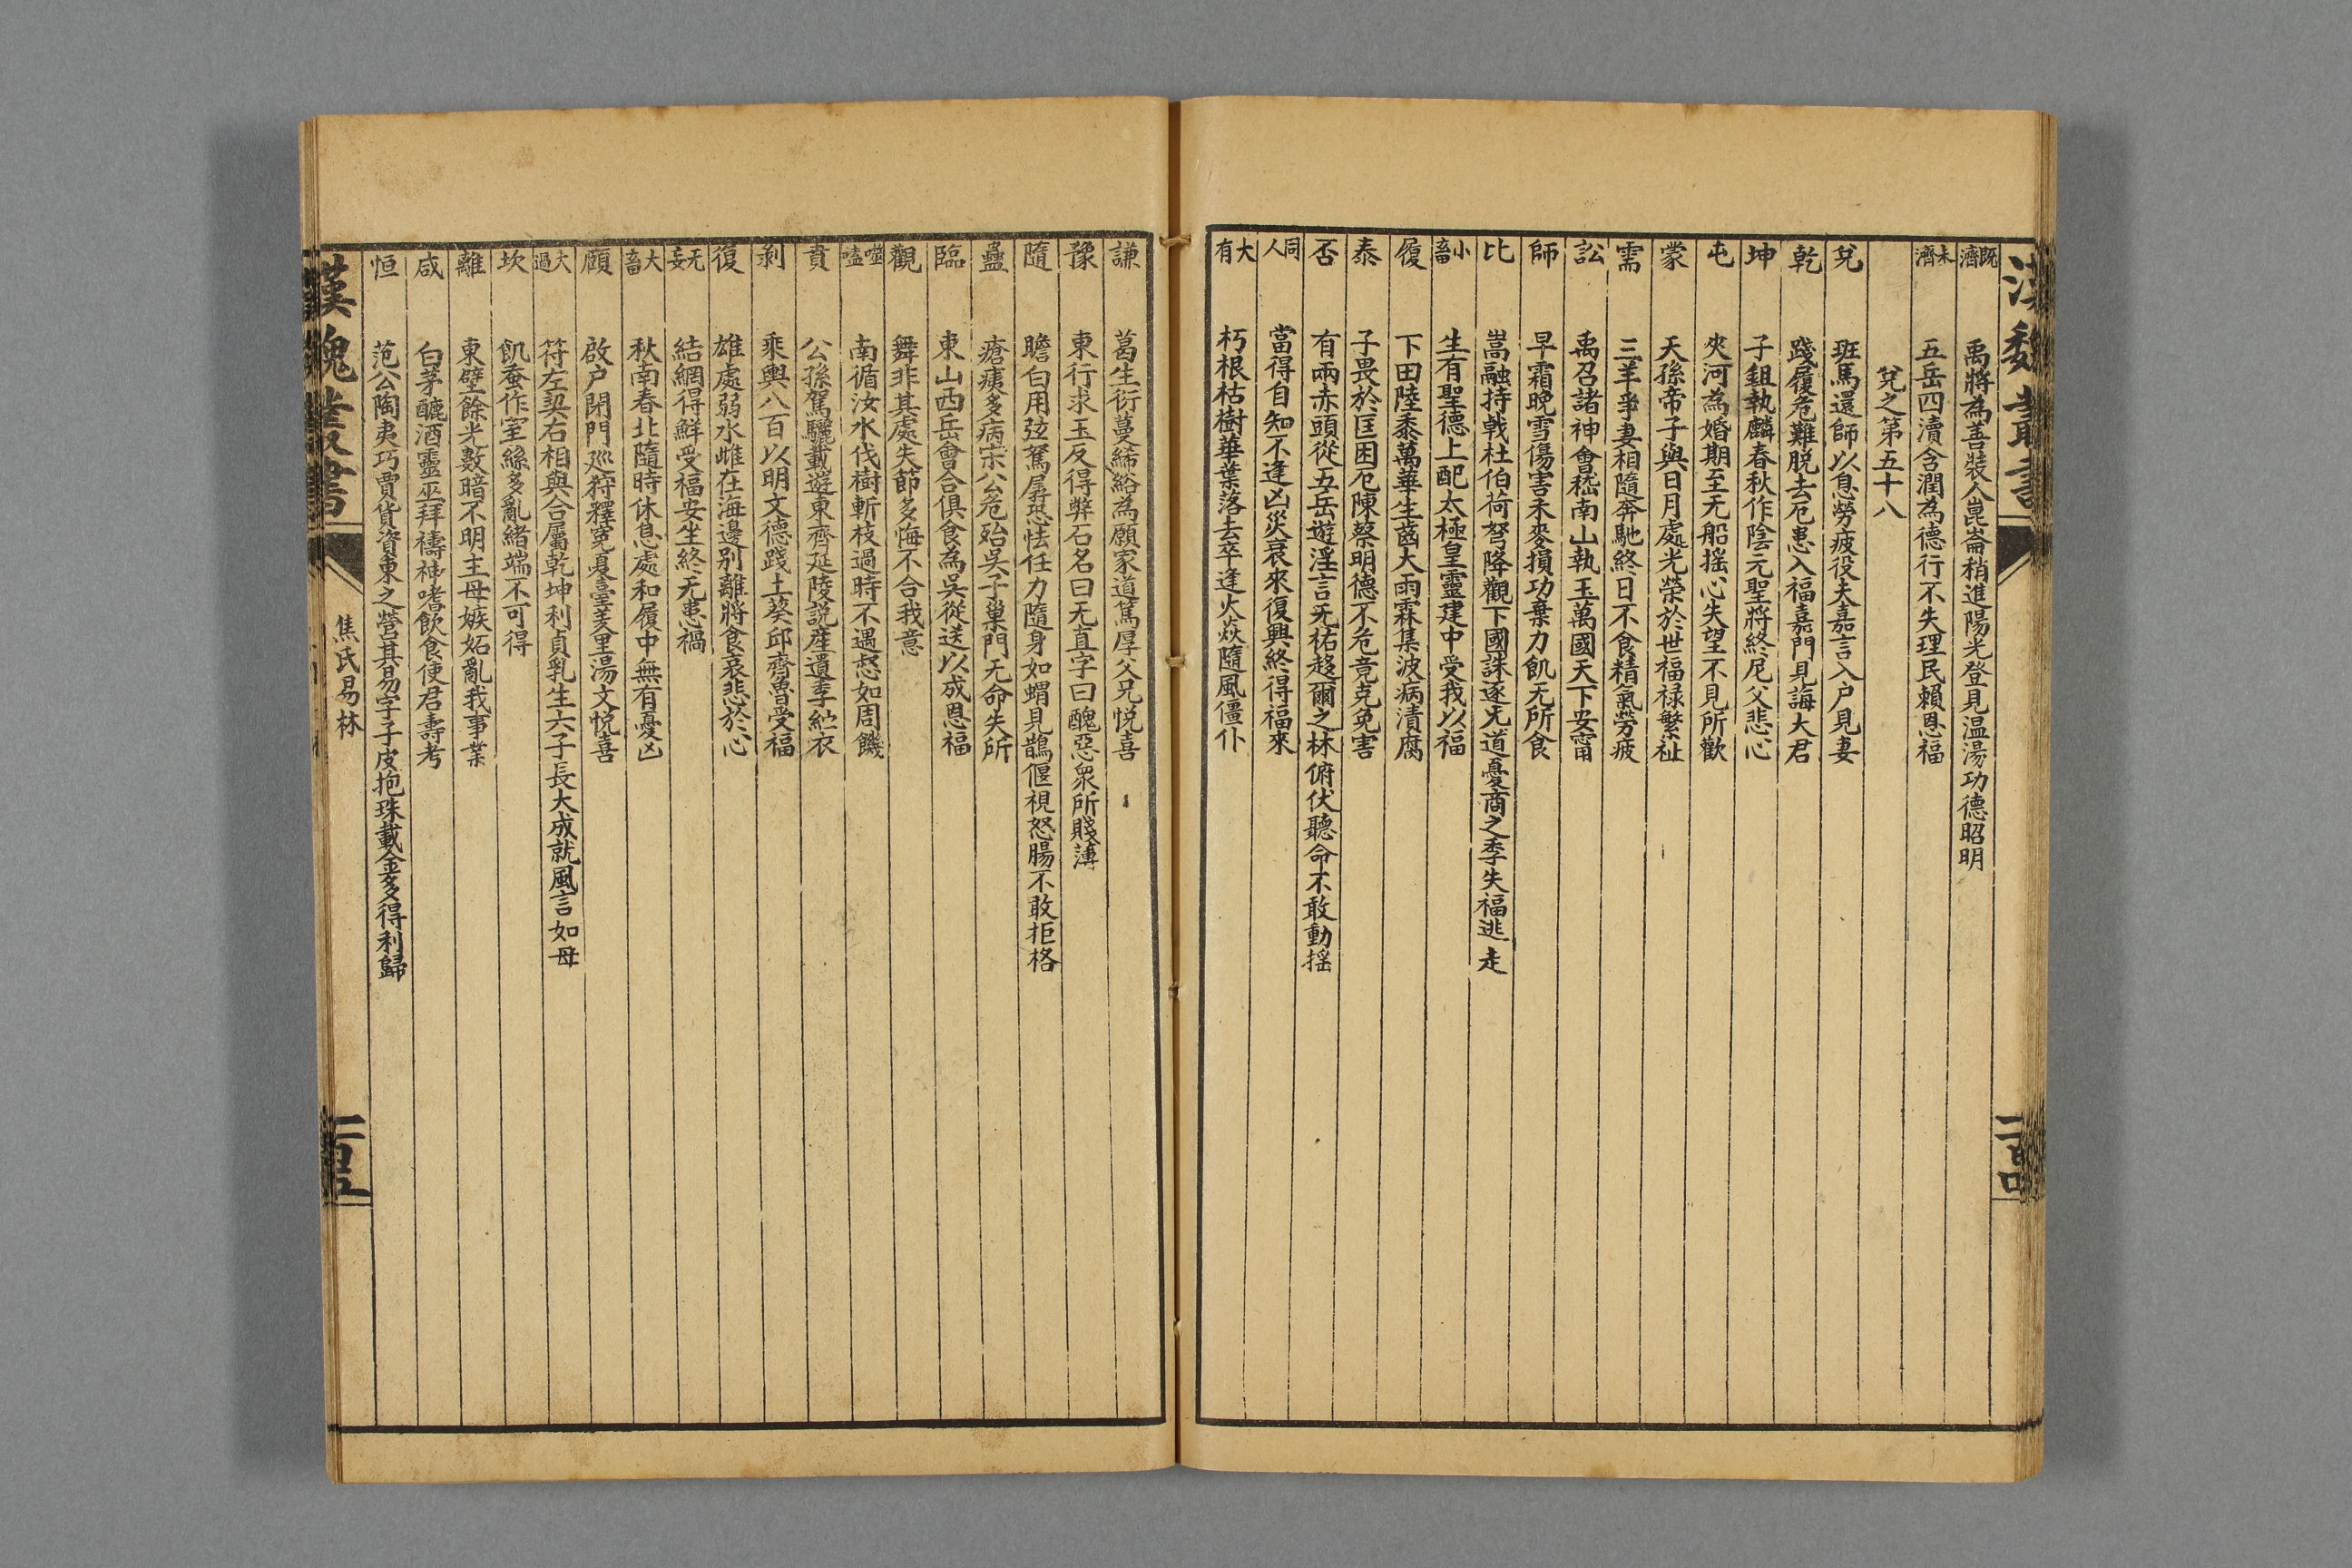 漢魏叢書
既濟 禹將為善裝人崑崙稍進陽光登見温湯功德昭明
未濟 五岳四瀆含潤為德行不失理民賴恩福
兌之第五十八
兌 班馬還師以息勞疲役夫嘉言入户見妻
乾 踐履危難脱去厄患入福嘉門見誨大君
坤 子鉏執麟春秋作陰元聖將終尼父悲心
屯 夾河為婚期至无船摇心失望不見所歡
蒙 天孫帝子與日月處光榮於世福禄繁祉
需 三羊爭妻相隨奔馳終日不食精氣勞疲
訟 禹召諸神會稽南山執玉萬國天下安甯
師 早霜晚雪傷害禾麥損功棄力飢无所食
比 嵩融持戟杜伯荷弩降觀下國誅逐无道夏商之季失福逃走
小畜 生有聖德上配太極皇靈建中受我以福
履 下田陸黍萬華生齒大雨霖集波病潰腐
泰 子畏於匡困厄陳蔡明德不危竟克免害
否 有兩赤頭從五岳遊淫言无祐趍爾之林俯伏聽命不敢動摇
同人 當得自知不逢凶災衰來復興終得福來
大有 朽根枯樹華葉落去卒逢火焱隨風僵仆
謙 葛生衍蔓絺綌為願家道篤厚父兄悦喜
豫 東行求玉反得弊石名曰无直字曰醜惡衆所賤薄
隨 瞻白用弦駑孱恐怯任力隨身如蝟見鵲偃視怒腸不敢拒格
蠱 瘡痍多病宋公危殆吳子巢門无命失所
臨 東山西岳會合俱食為吳從送以成恩福
觀 舞非其處失節多悔不合我意
噬嗑 南循汝水伐樹斬枝過時不遇惄如周饑
賁 公孫駕驪載遊東齊延陵説産遺季紵衣
剥 乘輿八百以明文德踐土葵邱齊魯受福
復 雄處弱水雌在海邊别離將食哀悲於心
无妄 結網得鮮受福安坐終无患禍
大畜 秋南春北隨時休息處和履中無有憂凶
頤 啟户閉門廵狩釋寃夏臺羑里湯文悦喜
大過 符左契右相與合屬乾坤利貞乳生六子長大成就風言如母
坎 飢蚕作室絲多亂緒端不可得
離 東壁餘光數暗不明主母嫉妬亂我事業
咸 白茅醴酒靈巫拜禱神嗜飲食使君壽考
恒 范公陶夷巧賈貨資東之營其易字子皮抱珠載金多得利歸
漢魏叢書
焦氏易林